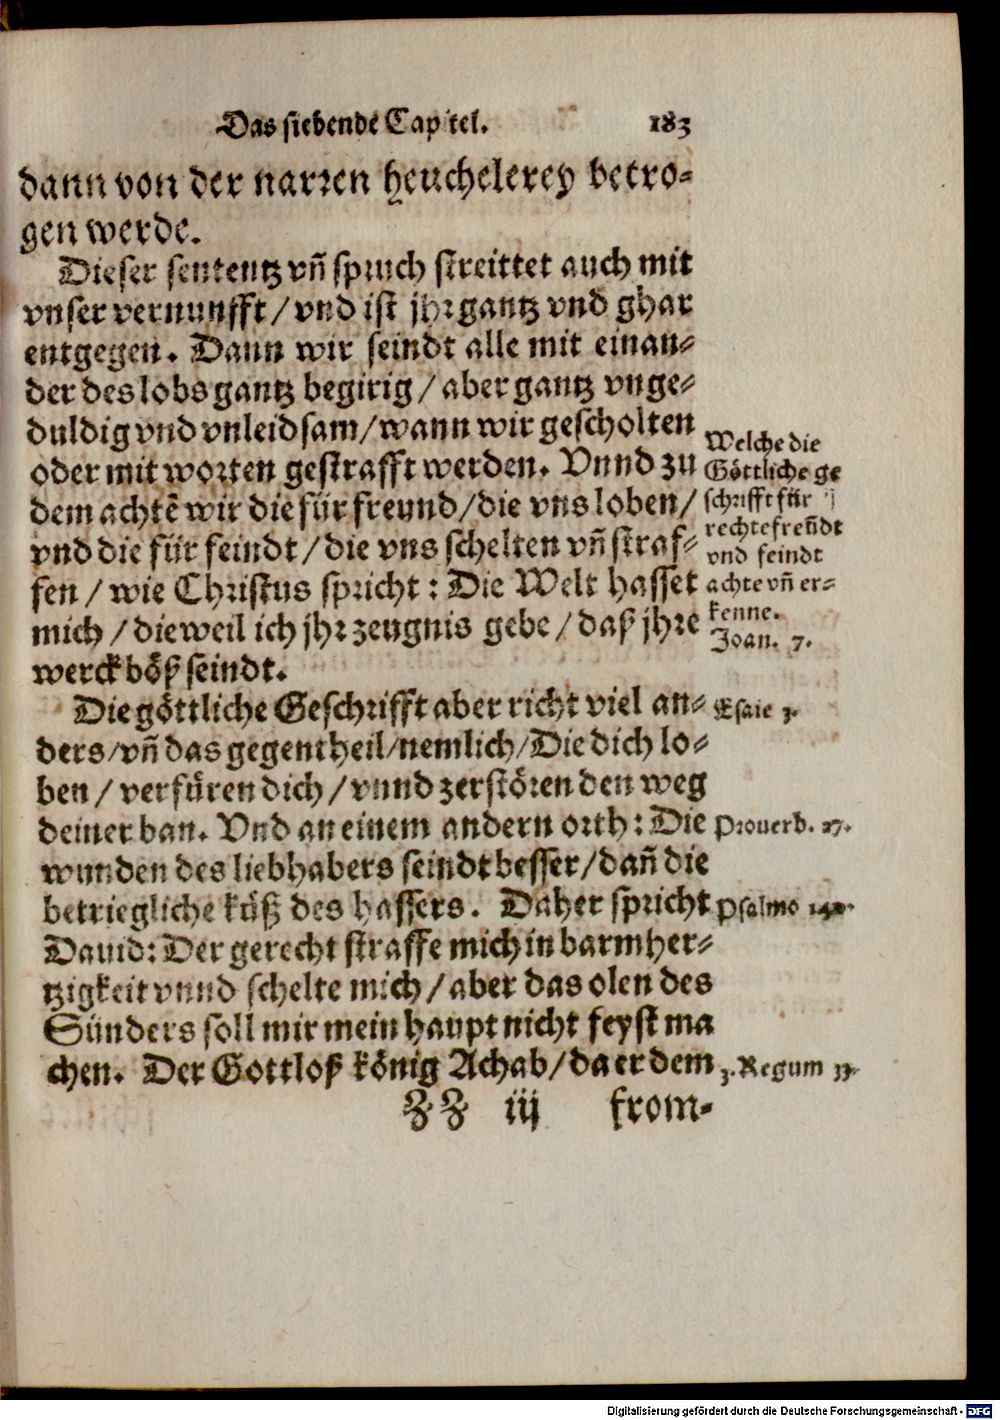 Das siebende Capitel. 183
dann von der narren heuchelerey betro-
gen werde.
Dieser sententz vñ spruch streittet auch mit
vnser vernunfft / vnd ist jhr gantz vnd ghar
entgegen. Dann wir seindt alle mit einan-
der des lobs gantz begirig / aber gantz vnge-
duldig vnd vnleidsam / wann wir gescholten
oder mit worten gestrafft werden. Vnnd zu
dem achtē wir die für freund / die vns loben /
vnd die für feindt / die vns schelten vñ straf-
fen / wie Christus spricht : Die Welt hasset
mich / dieweil ich jhr zeugnis gebe / daß jhre
werck böß seindt.
Welche die
Göttliche ge
schrifft für
rechte freũdt
vnd feindt
achte vñ er-
kenne.
Joan. 7.
Die göttliche Geschrifft aber richt viel an-
ders / vñ das gegentheil / nemlich / Die dich lo-
ben / verfüren dich / vnnd zerstören den weg
deiner ban. Vnd an einem andern orth : Die
wunden des liebhabers seindt besser / dañ die
betriegliche küß des hassers. Daher spricht
Dauid : Der gerecht straffe mich in barmher-
tzigkeit vnnd schelte mich / aber das olen des
Sünders soll mir mein haupt nicht feyst ma
chen. Der Gottloß könig Achab / da er dem
Esaie 3.
Prouerb. 27.
Psalmo 140.
3. Regum
iij from-
Digitalisierung gefördert durch die Deutsche Forschungsgemeinschaft - DFG